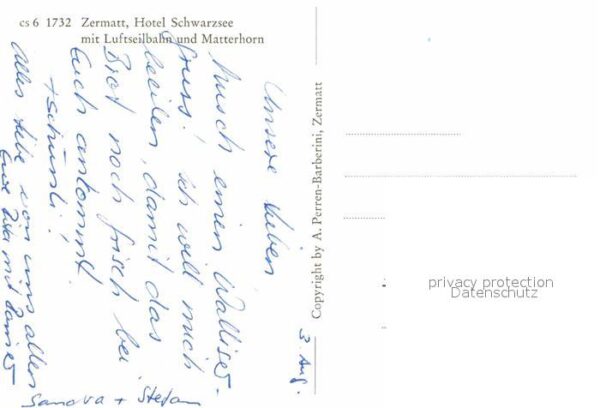 cs 6 1732 Zermatt, Hotel Schwarzsee
mit Luftseilbahn und Matterhorn
3. Aug.
Unsere Lieben
husch einen Walliser-
gruss! ich will mich
beeilen, damit das
Brot noch frisch bei
Euch ankommt
+ schünli!
Alles Liebe von uns allen
Eure mit
Sandra + Stefan
Copyright by A. Perren-Barberini, Zermatt
privacy protection
Datenschutz